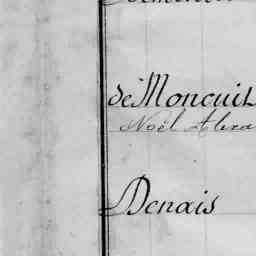 de Moncuit
Noël Alexa
Denais